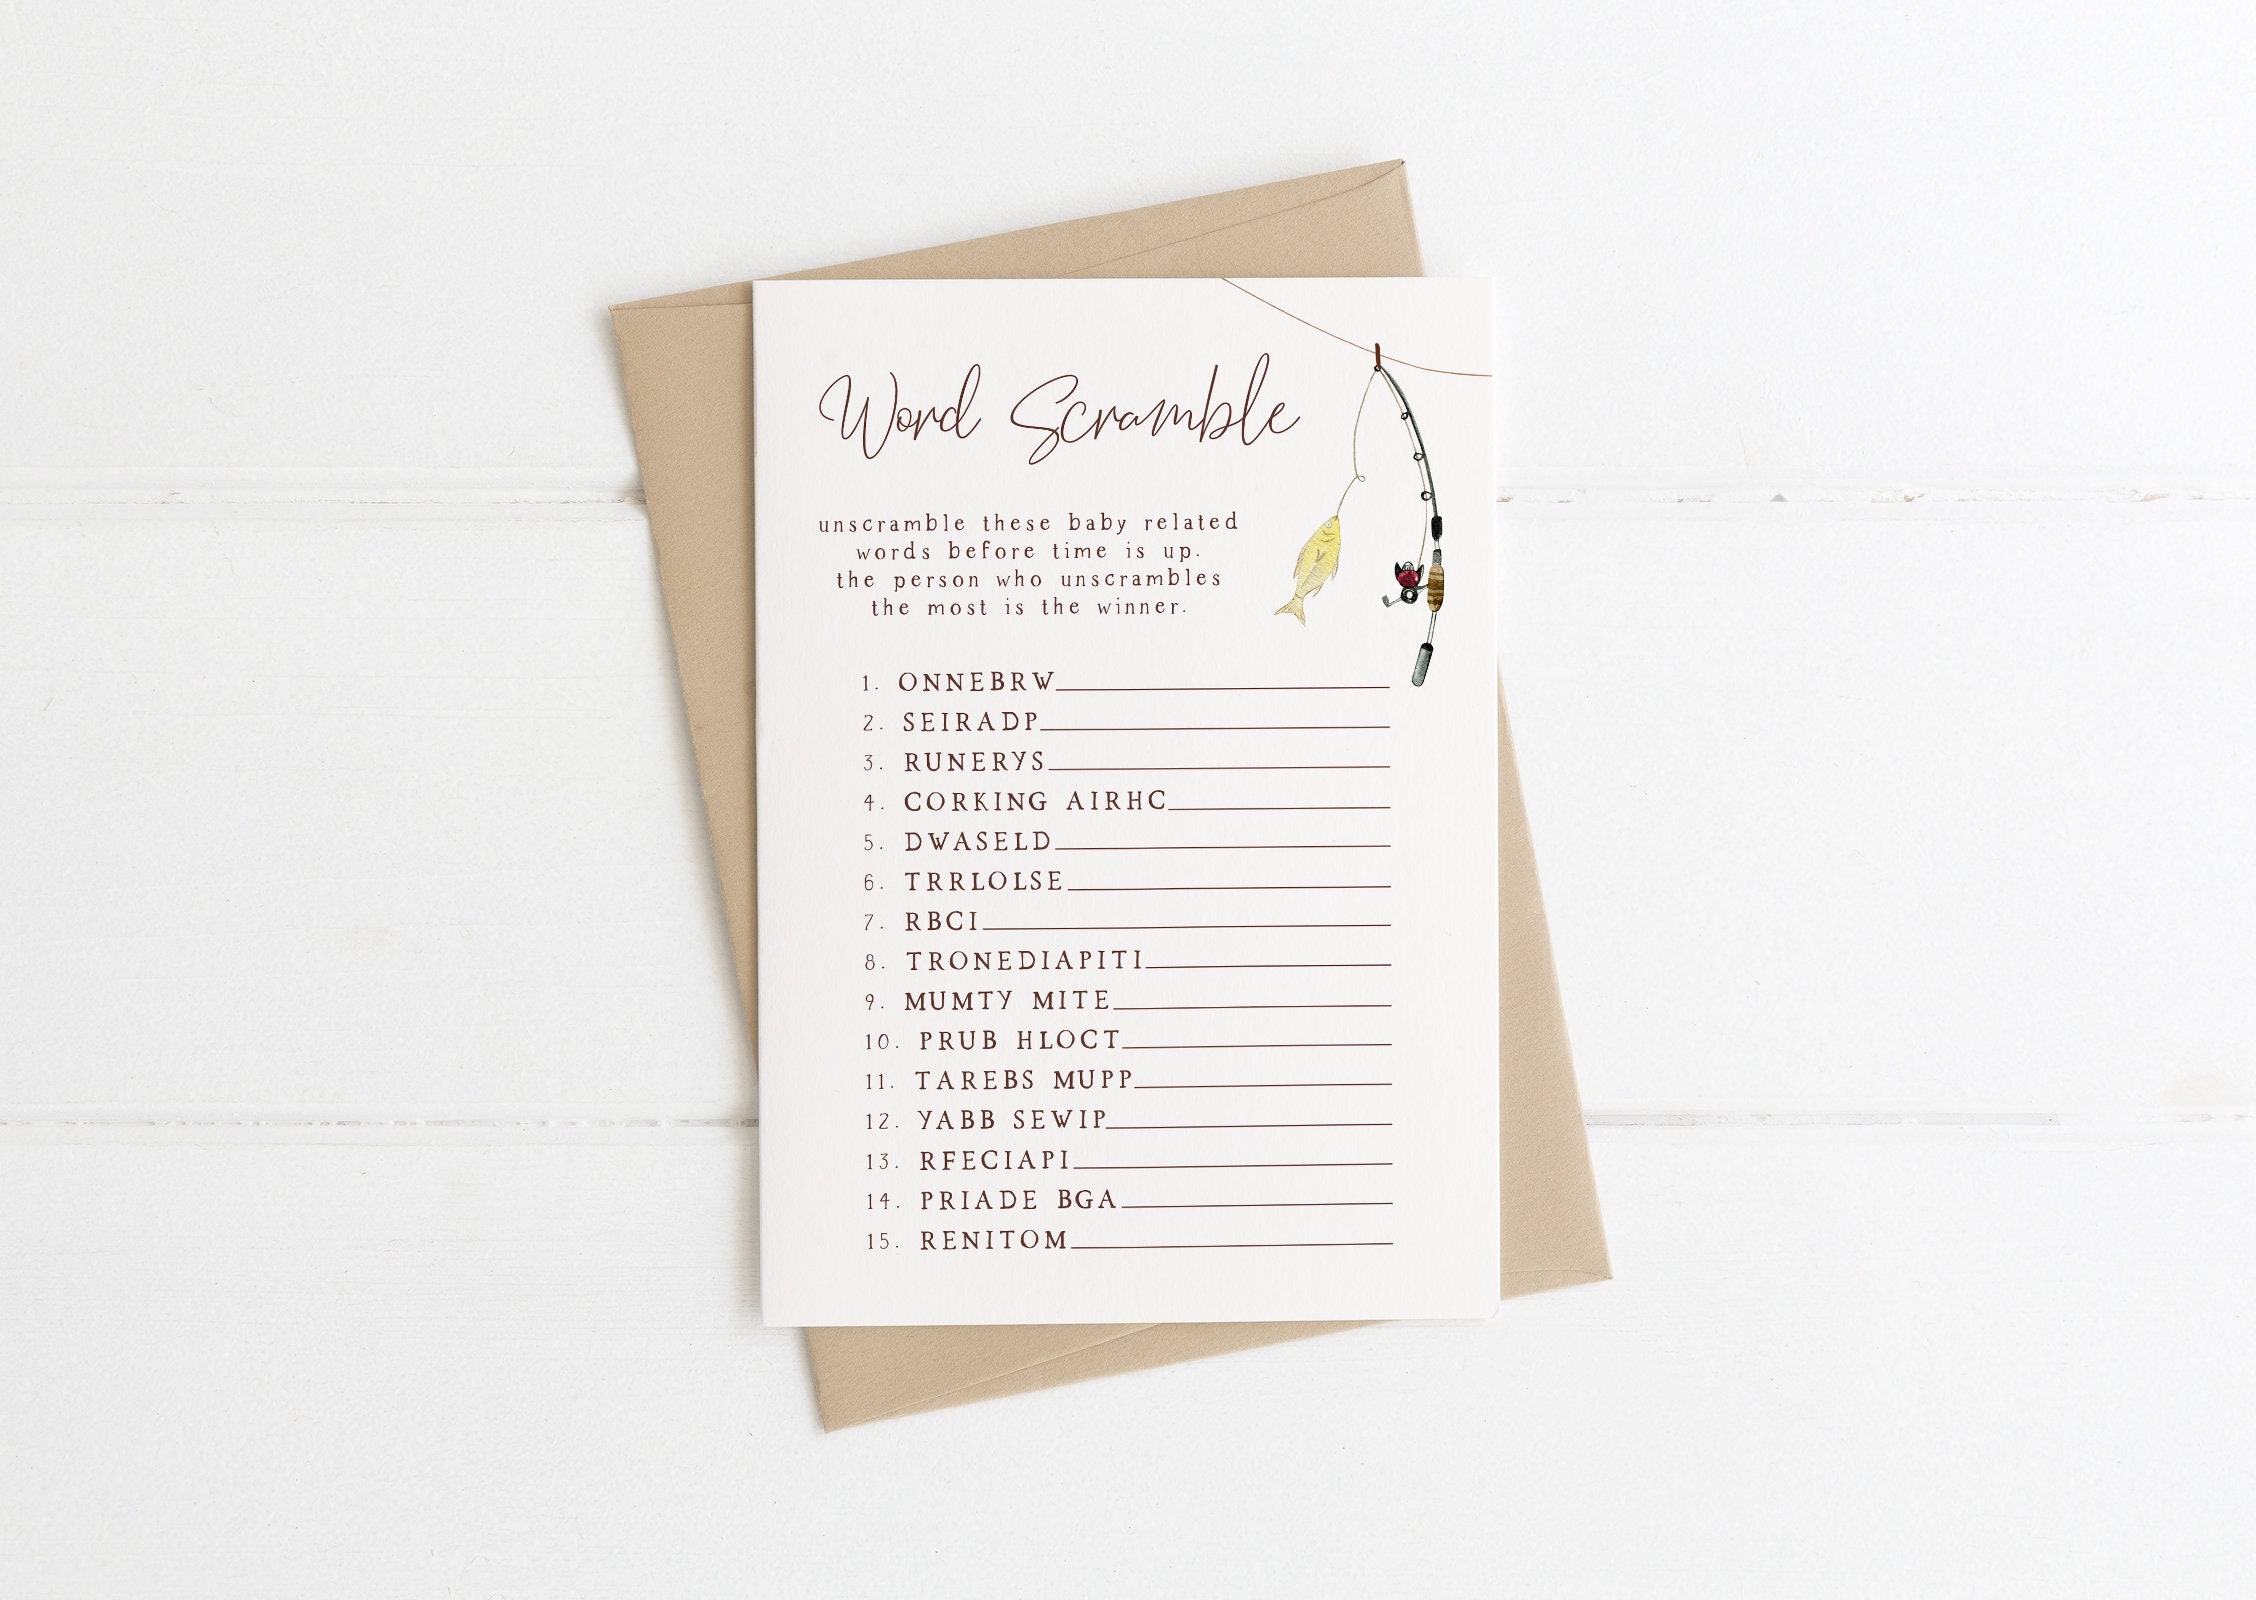 Word Scramble
unscramble these baby related
words before time is up.
the person who unscrambles
the most is the winner.
1. ONNEBRW
2. SEIRADP
3. RUNERYS
4. CORKING AIRHC
5. DWASELD
6. TRRLOLSE
7. RBCI
8. TRONEDIAPITI
9. MUMTY MITE
10. PRUB HLOCT
11. TAREBS MUPP
12. YABB SEWIP
13. RFECIAPI
14. PRIADE BGA
15. RENITOM